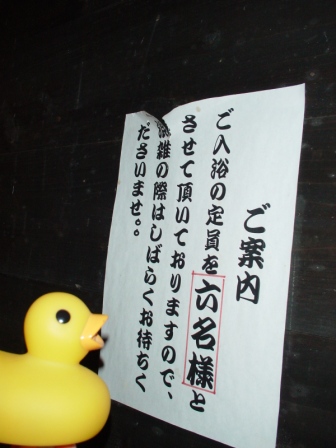 ご案内
ご入浴の定員を六名様と
させて頂いておりますので、
雑の際はしばらくお待ちく
ださいませ。